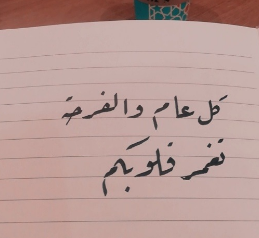 كل عام والفرحة
تغمر قلوبكم